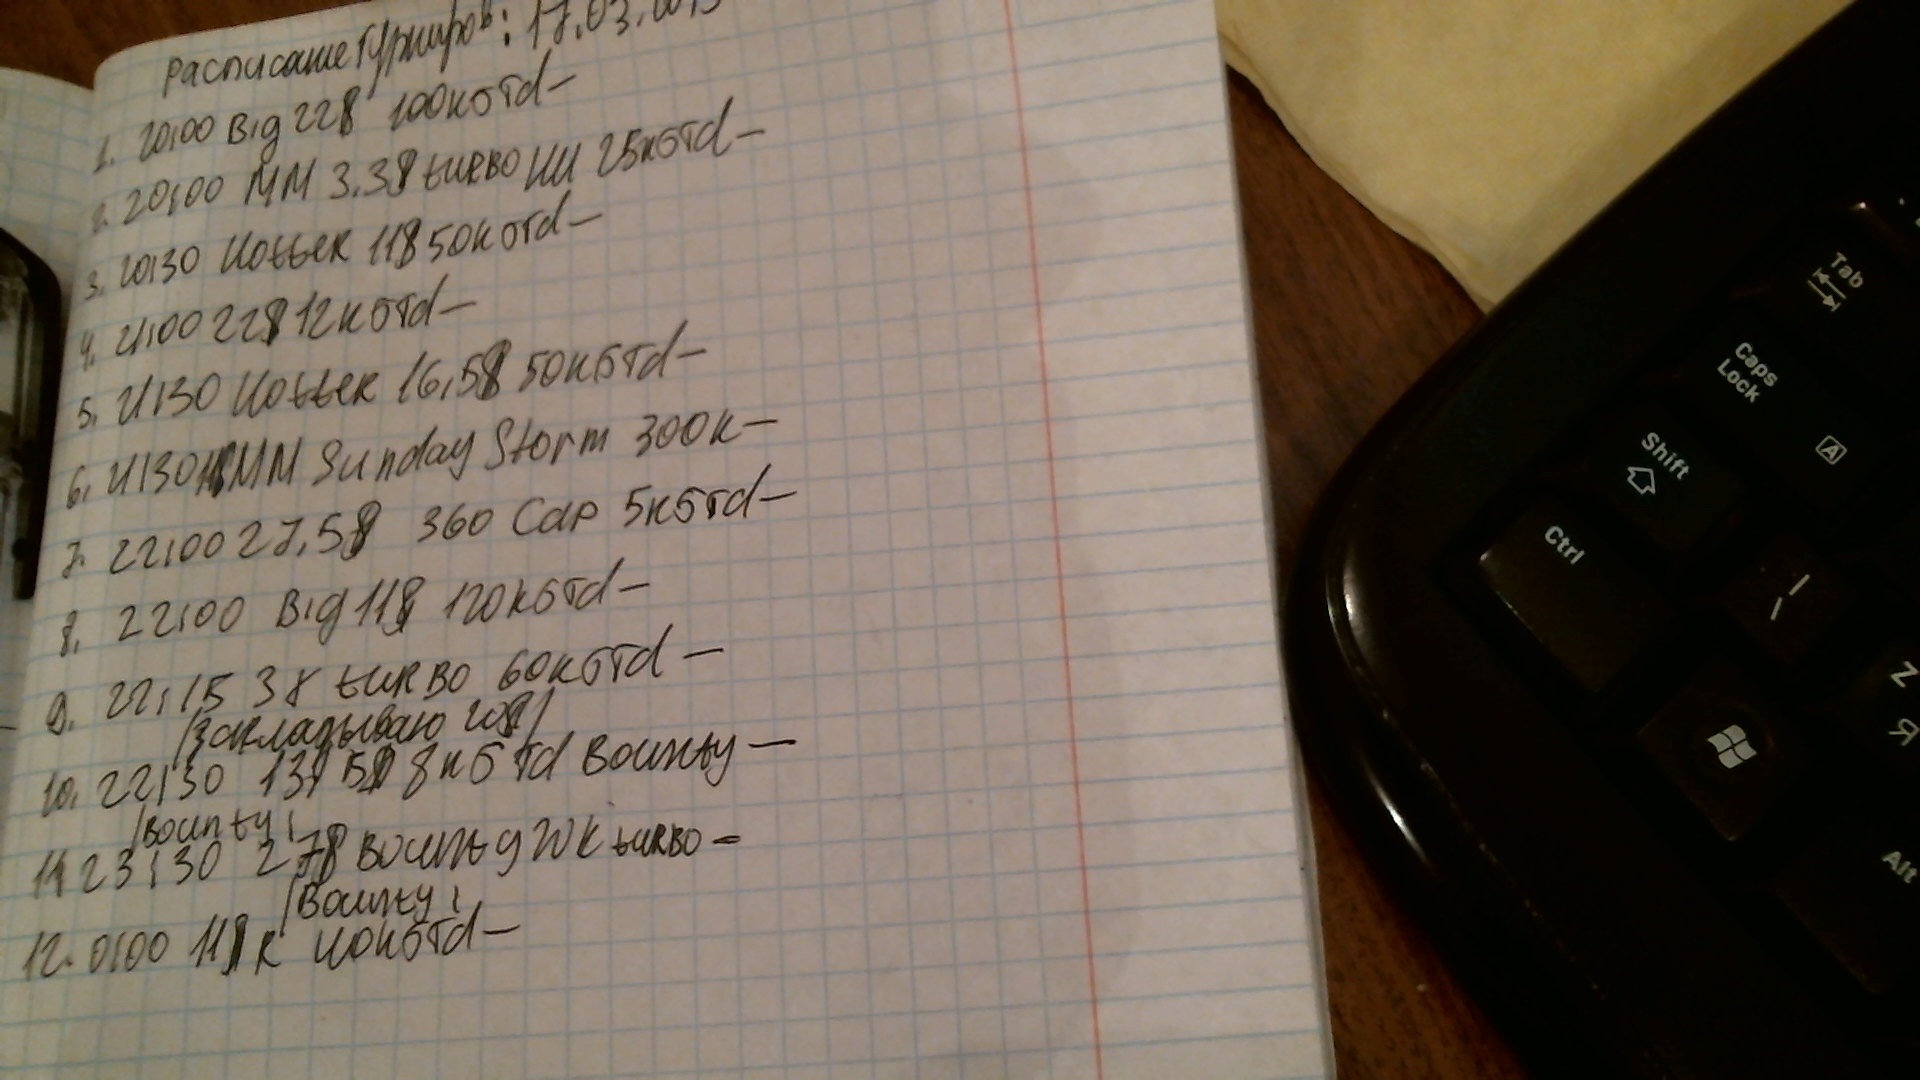 Расписание турниров: 17.03.2013
1. 20:00 Big 22$ 100K GTD –
2. 20:00 MM 3.3$ turbo 25K GTD –
3. 20:30 Hotter 11$ 50K GTD –
4. 21:00 22$ 12K GTD –
5. 21:30 Hotter 16,5$ 50K GTD –
6. 21:30 11$ MM Sunday Storm 300K –
7. 22:00 27,5$ 360 Cap 5K GTD –
8. 22:00 Big 11$ 120K GTD –
9. 22:15 3x turbo 60K GTD –
/закладываю 20$/
10. 22:30 13,5$ 8K GTD Bounty –
/Bounty:
11. 23:30 27$ Bounty 20K turbo –
/Bounty:
12. 0:00 11$ R GTD –
Tab
Caps Lock
A
Shift
Ctrl
Z
Я
Alt